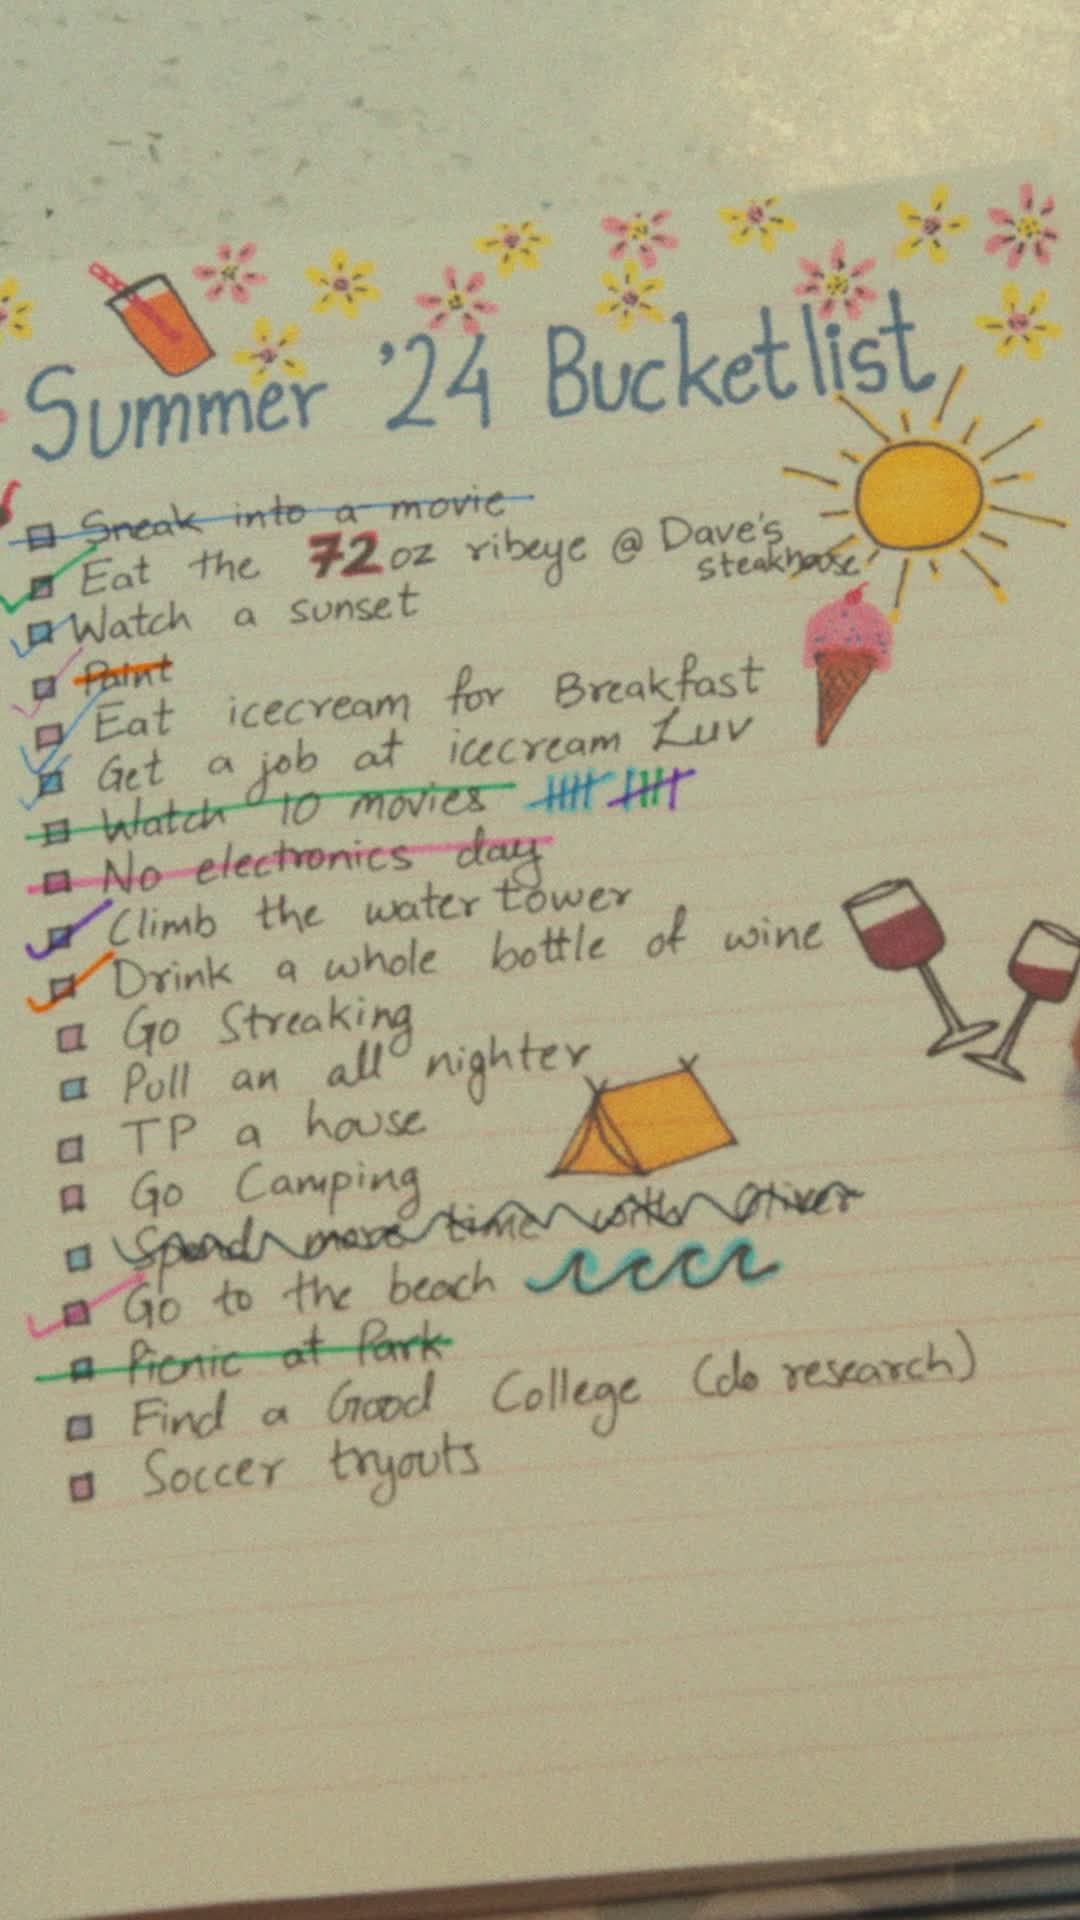 Summer '24 Bucketlist
Sneak into a movie
Eat the 72 oz ribeye @ Dave's
steakhouse
Watch a sunset
Paint
Eat icecream for Breakfast
Get a job at icecream Luv
Watch 10 movies
No electronics day
Climb the water tower
Drink a whole bottle of wine
Go Streaking
Pull an all nighter
TP a house
Go Camping
Spend more time with Oliver
Go to the beach
Picnic at Park
Find a Good College (do research)
Soccer tryouts